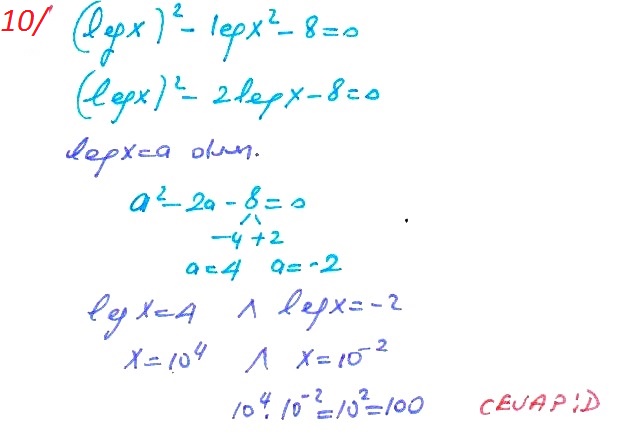 10/ (logx)² - logx² - 8 = 0
(logx)² - 2logx - 8 = 0
logx = a olsun.
a² - 2a - 8 = 0
-4 +2
a = 4 a = -2
log x = 4 ∧ logx = -2
x = 10⁴ ∧ x = 10⁻²
10⁴ . 10⁻² = 10² = 100 CEVAP: D